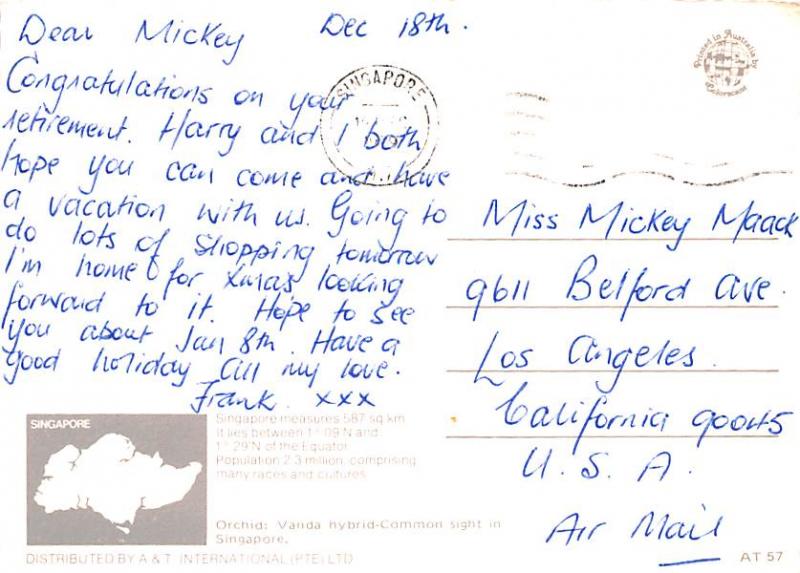 Dear Mickey Dec 18th.
Congratulations on your
retirement. Harry and I both
hope you can come and have
a vacation with us. Going to
do lots of shopping tomorrow
I'm home for Xmas looking
forward to it. Hope to see
you about Jan 8th. Have a
good holiday all my love.
Frank. xxx
SINGAPORE
Printed in Australia by
Miss Mickey Maack
9611 Belford Ave.
Los Angeles.
California 90045
U.S.A.
Air Mail
SINGAPORE
Singapore measures 587 sq km
It lies between 1° 09'N and
1° 29'N of the Equator.
Population 2.3 million, comprising
many races and cultures.
Orchid: Vanda hybrid-Common sight in
Singapore.
DISTRIBUTED BY A & T INTERNATIONAL (PTE) LTD
AT 57